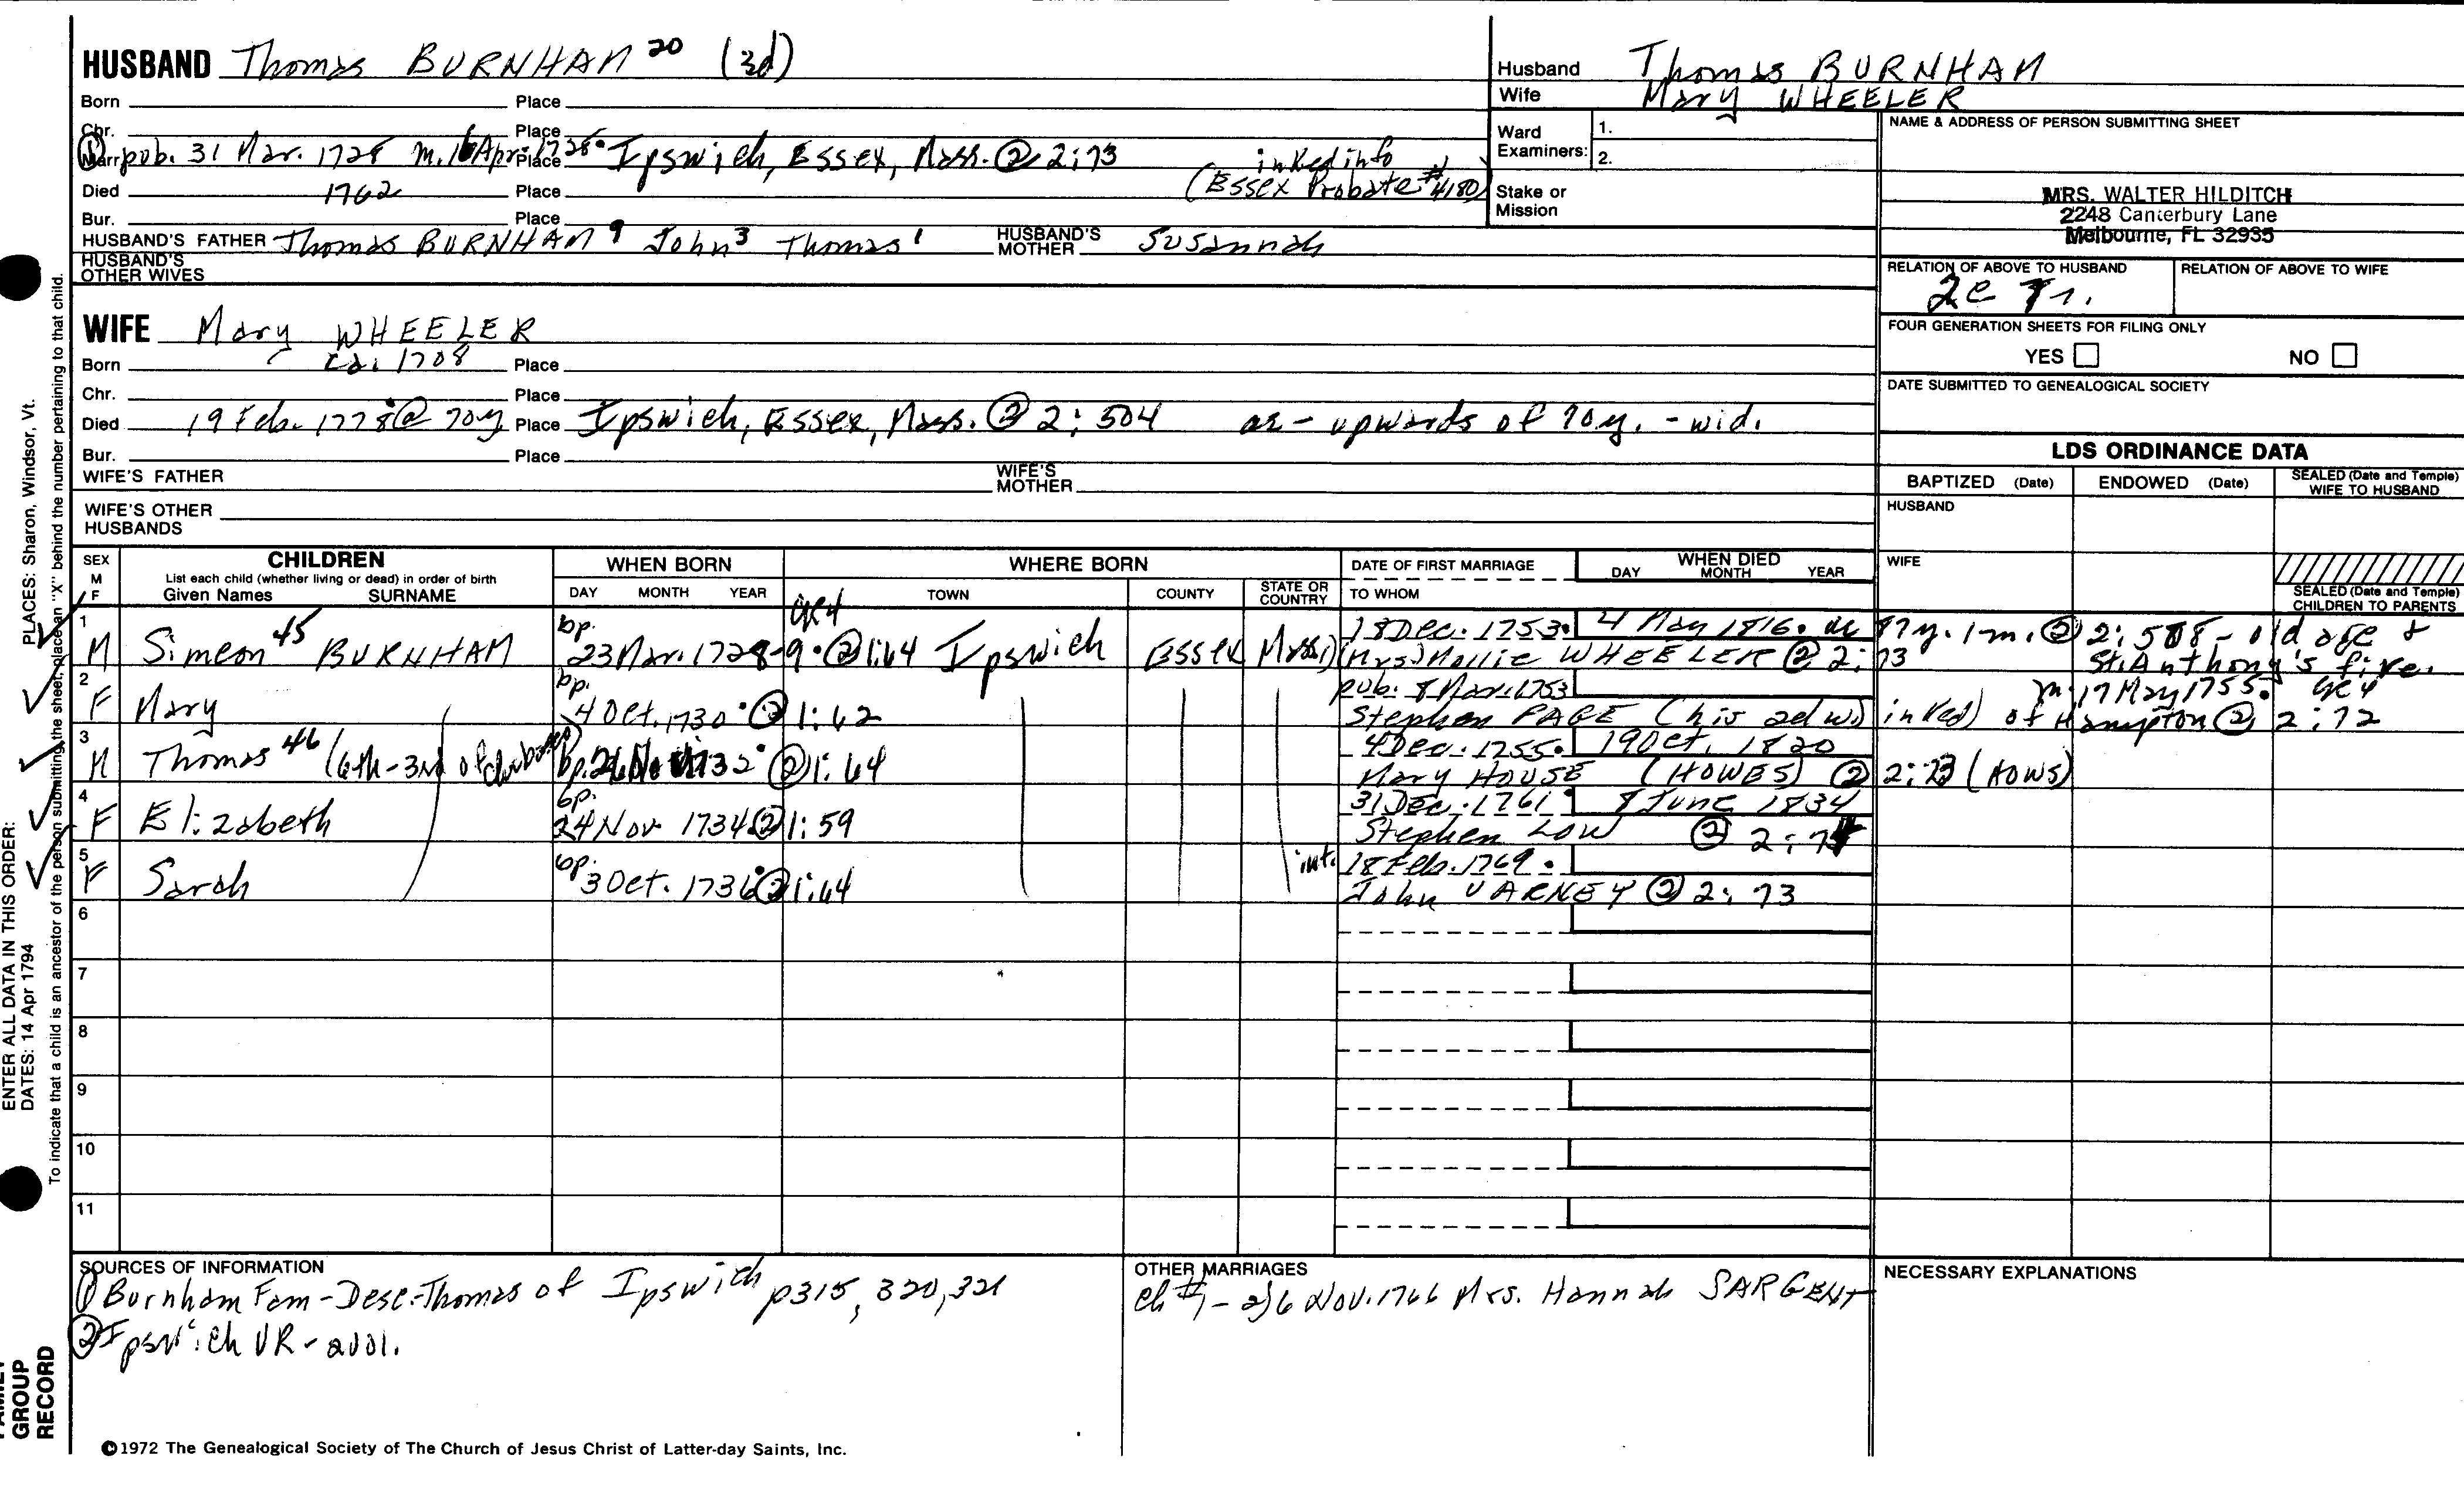 HUSBAND Thomas BURNHAM 20 (3d)
Born Place
Chr. Place
① Marr pub. 31 Mar. 1728 m. 16 Apr. 1728. Place Ipswich, Essex, Mass. @ 2:73 inked info
Died 1762 Place (Essex Probate #4180)
Bur. Place
HUSBAND'S FATHER Thomas BURNHAM 9 John 3 Thomas 1 HUSBAND'S MOTHER Susannah
HUSBAND'S OTHER WIVES
WIFE Mary WHEELER
Born ca. 1708 Place
Chr. Place
Died 19 Feb. 1778 @ 70y Place Ipswich, Essex, Mass. ② 2:504 ae - upwards of 70y. - wid.
Bur. Place
WIFE'S FATHER WIFE'S MOTHER
WIFE'S OTHER HUSBANDS
Husband Thomas BURNHAM
Wife Mary WHEELER
Ward Examiners: 1.
2.
Stake or Mission
NAME & ADDRESS OF PERSON SUBMITTING SHEET
MRS. WALTER HILDITCH
2248 Canterbury Lane
Melbourne, FL 32935
RELATION OF ABOVE TO HUSBAND RELATION OF ABOVE TO WIFE
2c 7r.
FOUR GENERATION SHEETS FOR FILING ONLY
YES NO
DATE SUBMITTED TO GENEALOGICAL SOCIETY
LDS ORDINANCE DATA
BAPTIZED (Date) ENDOWED (Date) SEALED (Date and Temple) WIFE TO HUSBAND
HUSBAND
WIFE
SEALED (Date and Temple) CHILDREN TO PARENTS
SEX M F
CHILDREN
List each child (whether living or dead) in order of birth
Given Names SURNAME
WHEN BORN
DAY MONTH YEAR
WHERE BORN
TOWN COUNTY STATE OR COUNTRY
DATE OF FIRST MARRIAGE
TO WHOM
WHEN DIED
DAY MONTH YEAR
1 M Simeon 45 BURNHAM bp. 23 Mar. 1728-9. ② 1:64 Ipswich Essex Mass. 18 Dec. 1753. 4 May 1816. ae 87y. 1m. ② 2:508 - old age & St. Anthony's fire.
(Mrs) Mollie WHEELER ② 2:73
2 F Mary bp. 4 Oct. 1730. ② 1:62 pub. 8 Mar. 1753 m. 17 May 1755.
Stephen PAGE (his 2d w.) inked) of Hampton ② 2:72
3 M Thomas 46 (6th-3rd of bp. 1732. ② 1:64 4 Dec. 1755. 19 Oct. 1820
Mary HOUSE (HOWES) ② 2:73 (HOWS)
4 F Elizabeth bp. 24 Nov 1734. ② 1:59 31 Dec. 1761. 8 June 1834
Stephen LOW ② 2:7
5 F Sarah bp. 3 Oct. 1736. ② 1:64 int. 18 Feb. 1769.
John VARNEY ② 2:73
6
7
8
9
10
11
SOURCES OF INFORMATION
① Burnham Fam - Desc. Thomas of Ipswich p315, 320, 321
② Ipswich VR - 2vol.
OTHER MARRIAGES
Ch #1 - 2) 6 Nov. 1766 Mrs. Hannah SARGENT
NECESSARY EXPLANATIONS
©1972 The Genealogical Society of The Church of Jesus Christ of Latter-day Saints, Inc.
ENTER ALL DATA IN THIS ORDER:
PLACES: Sharon, Windsor, Vt.
DATES: 14 Apr 1794
To indicate that a child is an ancestor of the person submitting the sheet, place an "X" behind the number pertaining to that child.
FAMILY GROUP RECORD